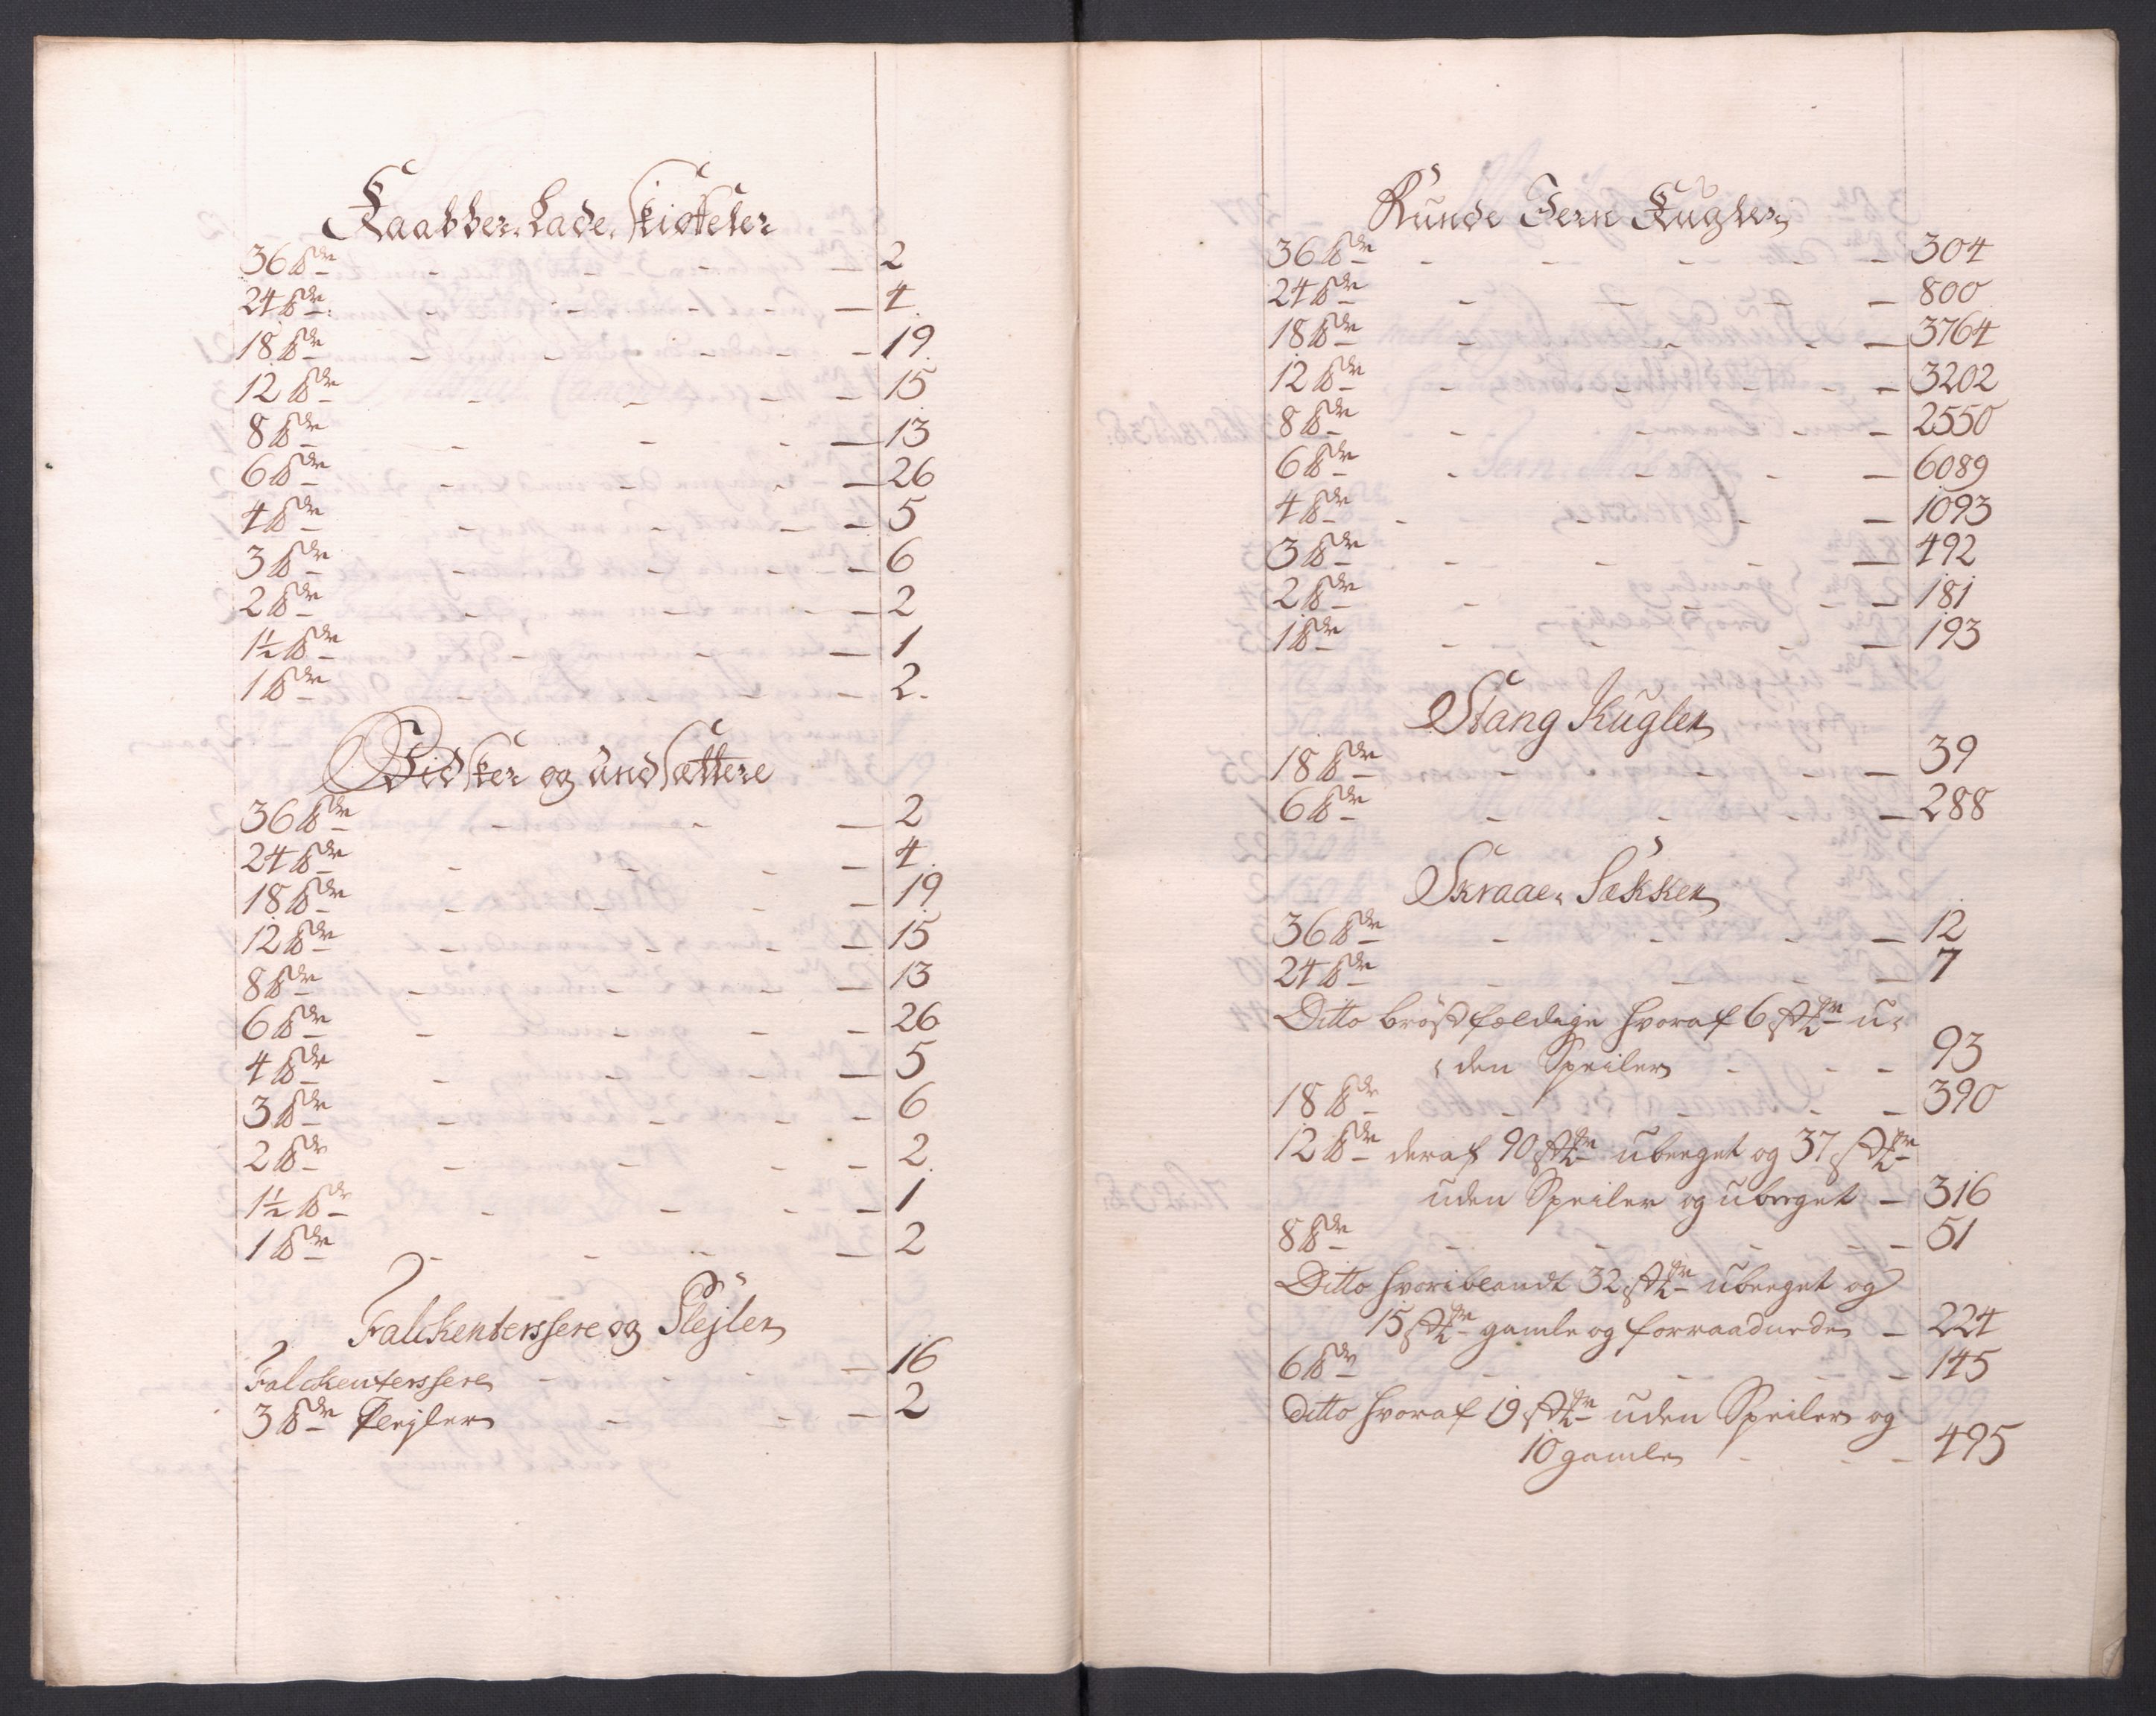 Kaabber Lade Skioffeler
36 ℔dr - - - - 2
24 ℔dr - - - - 4
18 ℔dr - - - - 19
12 ℔dr - - - - 15
8 ℔dr - - - - 13
6 ℔dr - - - - 26
4 ℔dr - - - - 5
3 ℔dr - - - - 6
2 ℔dr - - - - 2
1½ ℔dr - - - - 1
1 ℔dr - - - - 2
Vidsker og andsættere
36 ℔dr - - - 2
24 ℔dr - - - 4
18 ℔dr - - - 19
12 ℔dr - - - 15
8 ℔dr - - - 13
6 ℔dr - - - 26
4 ℔dr - - - 5
3 ℔dr - - - 6
2 ℔dr - - - 2
1½ ℔dr - - - 1
1 ℔dr - - - 2
Falckenterssere og Plejler
Falckenterssere - - - 16
3 ℔dr Plejler - - - 2
Runde Jern Kugler
36 ℔dr - - - - 304
24 ℔dr - - - - 800
18 ℔dr - - - - 3764
12 ℔dr - - - - 3202
8 ℔dr - - - - 2550
6 ℔dr - - - - 6089
4 ℔dr - - - - 1093
3 ℔dr - - - - 492
2 ℔dr - - - - 181
1 ℔dr - - - - 193
Stang Kugler
18 ℔dr - - - - 39
6 ℔dr - - - - 288
Skraae Sækker
36 ℔dr - - - - 12
24 ℔dr - - - - 7
Ditto bröstfældige hvoraf 6 stkr u-
den Speiler - - - 93
18 ℔dr - - - - 390
12 ℔dr deraf 90 stkr ubeeget og 37 stkr
uden Speiler og ubeeget - 316
8 ℔dr - - - - 51
Ditto hvoriblandt 32 stkr ubeeget og
15 stkr gamle og forraadnede - 224
6 ℔dr - - - - 145
Ditto hvoraf 19 stkr uden Speiler og
10 gamle - - - 495